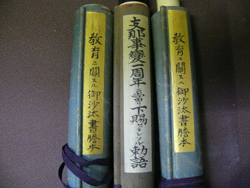 教育ニ關スル御沙汰書謄本
支那事變一周年ニ當リ下賜 勅語
教育ニ關スル御沙汰書謄本